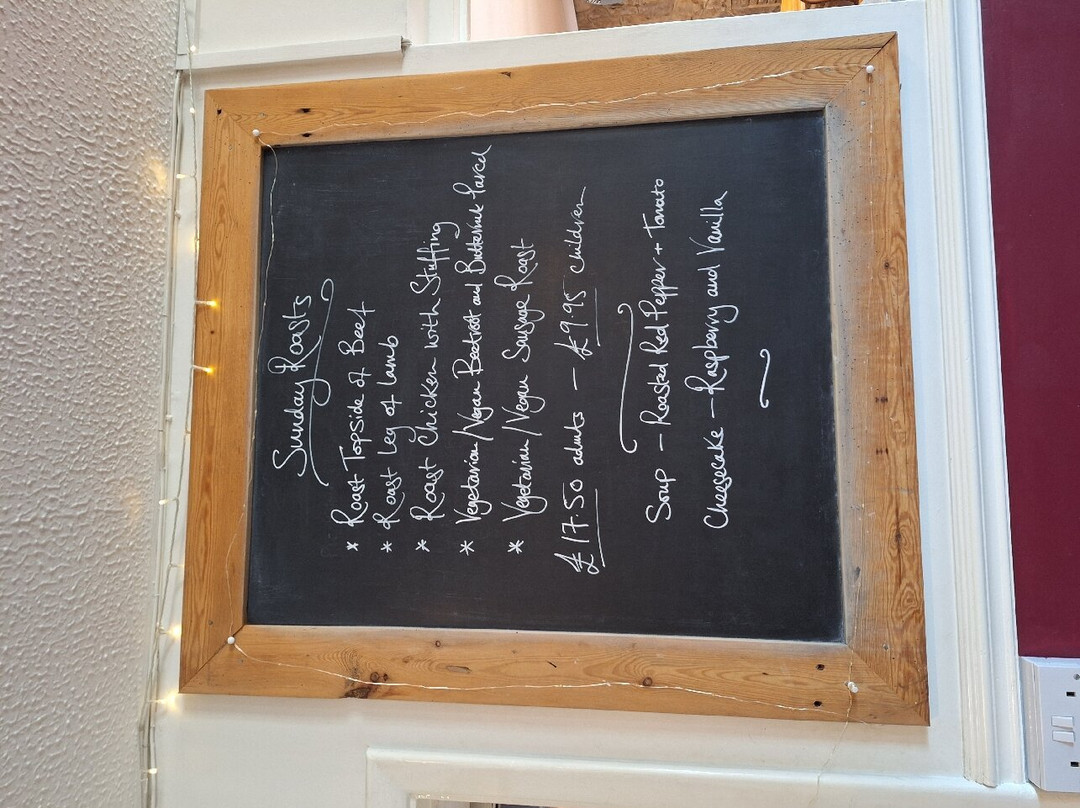 Sunday Roasts
* Roast Topside of Beef
* Roast Leg of Lamb
* Roast Chicken with Stuffing
* Vegetarian/Vegan Beetroot and Butternut Parcel
* Vegetarian/Vegan Sausage Roast
£17.50 adults - £9.95 children
Soup - Roasted Red Pepper + Tomato
Cheesecake - Raspberry and Vanilla